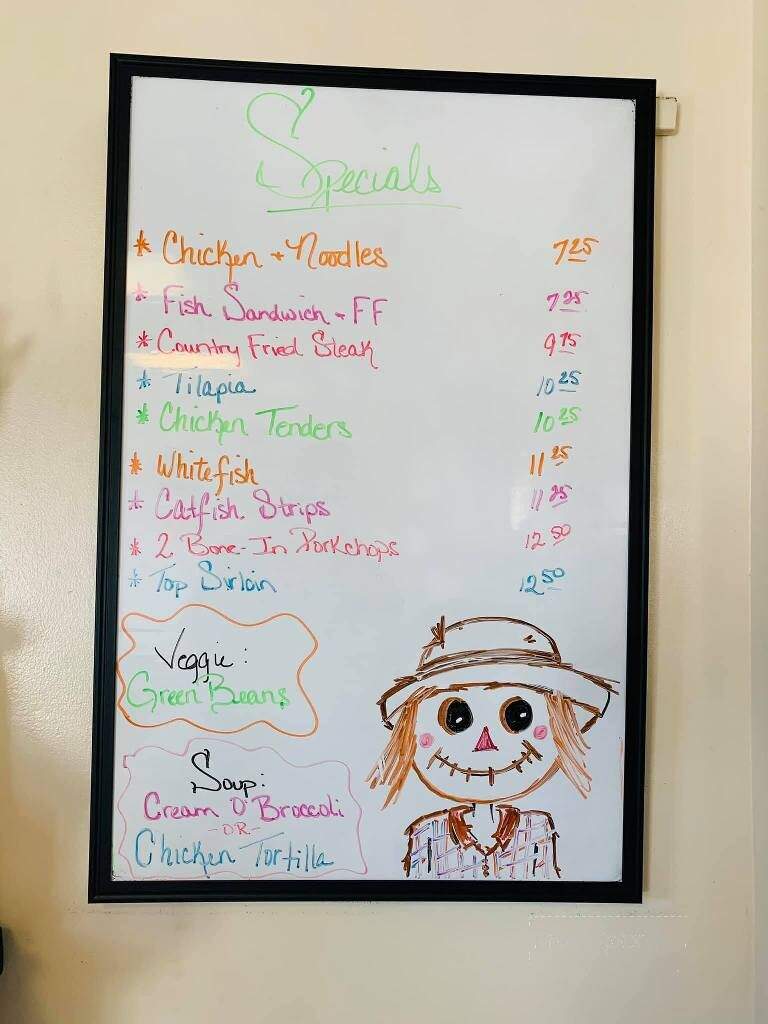 Specials
* Chicken + Noodles 7 25
* Fish Sandwich + FF 7 25
* Country Fried Steak 9 75
* Tilapia 10 25
* Chicken Tenders 10 25
* Whitefish 11 25
* Catfish Strips 11 25
* 2 Bone-In Porkchops 12 50
* Top Sirloin 12 50
Veggie:
Green Beans
Soup:
Cream O' Broccoli
-OR-
Chicken Tortilla